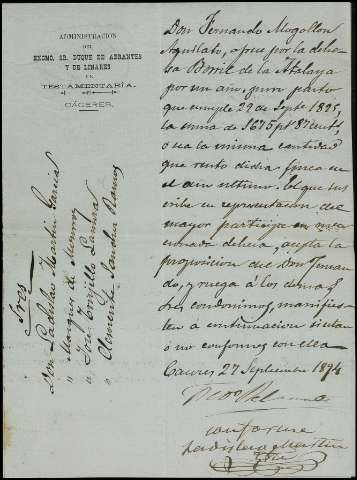 ADMINISTRACION
DEL
EXCMO. SR. DUQUE DE ABRANTES
Y DE LINARES
EN
TESTAMENTARÍA.
CÁCERES.
Don Fernando Mogollon
ofrece por la dehe-
sa Borril de la Atalaya
por un año, puro pasto
que cumple 29 de Septe 1895,
la suma de 1675 pts 87 cents,
ó sea la misma cantidad
que rentó dicha finca en
el año ultimo. El que sus-
cribe en representacion del
mayor participe en men-
cionada dehesa, acepta la
proposicion de Don Fernan-
do, y ruega á los demas
Sres condominos, manifies-
ten á continuacion si estan
ó no conformes con ella
Caceres 27 Septiembre 1894
conforme
Ladislao Martin
Sres
Don Ladislao Martin Garcia
" Marques de Monroy
" José Torrijo Lamara
" Clemente Sanchez Ramos